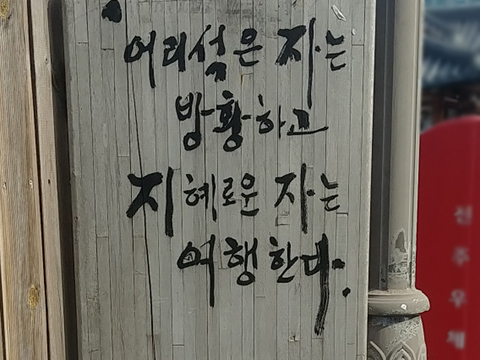 어리석은 자는
방황하고
지혜로운 자는
여행한다.